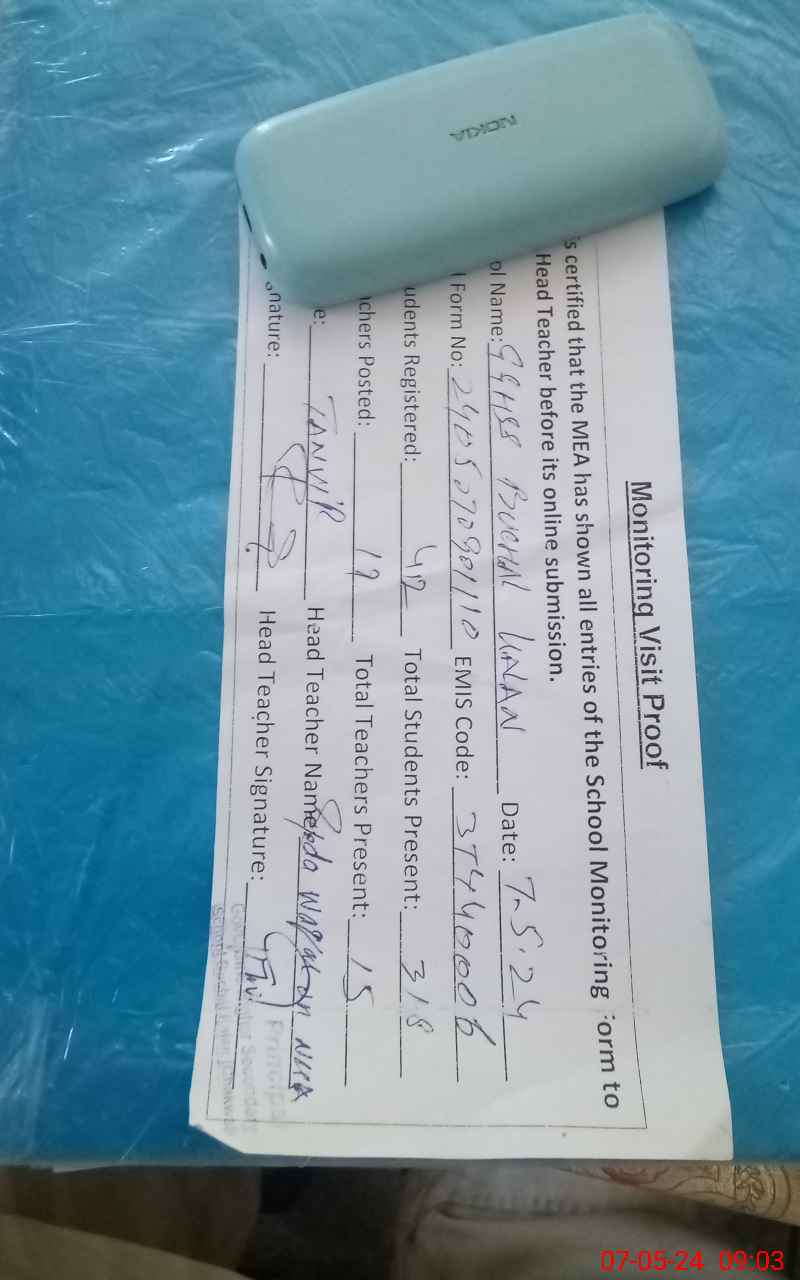 NOKIA
Monitoring Visit Proof
is certified that the MEA has shown all entries of the School Monitoring Form to
Head Teacher before its online submission.
ol Name: GGHSS BUCHAL KALAN Date: 7-5-24
l Form No: 2405070901110 EMIS Code: 37440006
udents Registered: 412 Total Students Present: 318
chers Posted: 19 Total Teachers Present: 15
e: TANVIR Head Teacher Name:
nature: Head Teacher Signature:
Principal
07-05-24 09:03